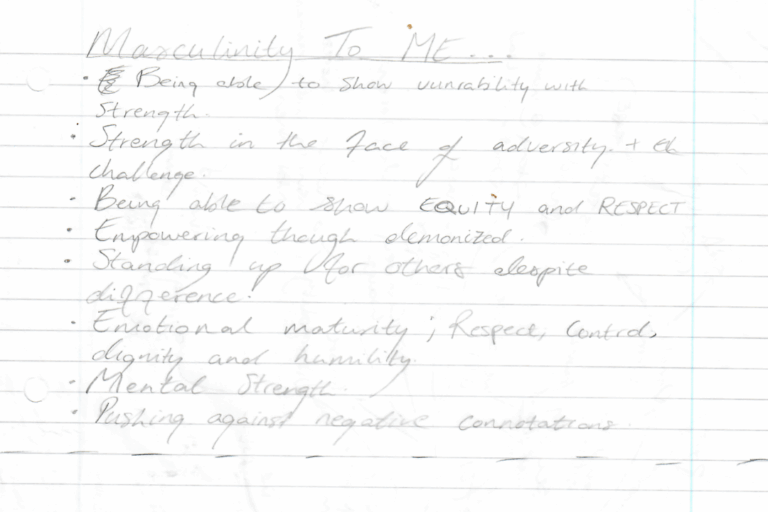 Masculinity To ME...
• Being able to show vunrability with
Strength.
• Strength in the face of adversity. +
challenge.
• Being able to show EQUITY and RESPECT
• Empowering though demonized.
• Standing up for others despite
difference.
• Emotional maturity ; Respect, Control,
dignity and humility.
• Mental Strength.
• Pushing against negative connotations.